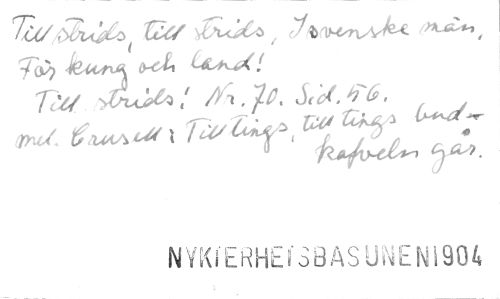 Till strids, till strids, I svenske män,
För kung och land!
Till strids! Nr. 70. Sid. 56.
mel. Crusell: Till tings, till tings bud-
kafveln går.
NYKTERHETSBASUNEN 1904